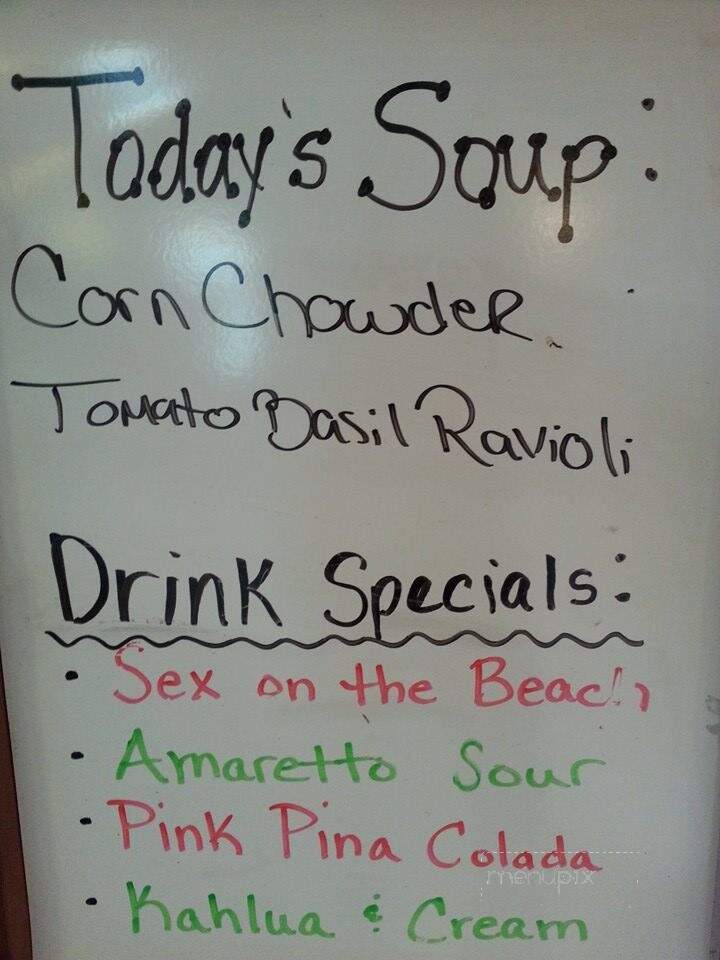 Today's Soup:
Corn Chowder
Tomato Basil Ravioli
Drink Specials:
• Sex on the Beach
• Amaretto Sour
• Pink Pina Colada
menupix
• Kahlua & Cream